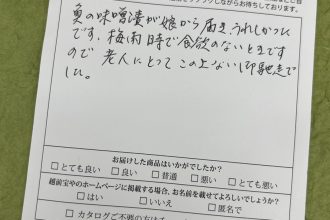 お待ちしております。
魚の味噌漬が娘から届き、うれしかった
です。梅雨時で食欲のないときです
ので 老人にとって この上ない御馳走で
した。
お届けした商品はいかがでしたか?
□とても良い □良い □普通 □悪い □とても悪い
越前宝やのホームページに掲載する場合、お名前を載せてよろしいでしょうか?
□はい □いいえ □匿名で
□カタログご不要の方は